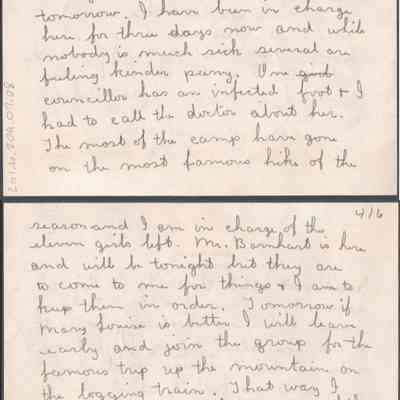 tomorrow. I have been in charge
here for three days now and while
nobody is much sick several are
feeling kinder puny. One girl
councillor has an infected foot & I
had to call the doctor about her.
The most of the camp have gone
on the most famous hike of the
2014.209.07.08
4/6
season and I am in charge of the
eleven girls left. Mr. Barnhart is here
and will be tonight but they are
to come to me for things & I am to
keep them in order. Tomorrow if
Mary Louise is better I will leave
early and join the group for the
famous trip up the mountain on
the logging train. That way I